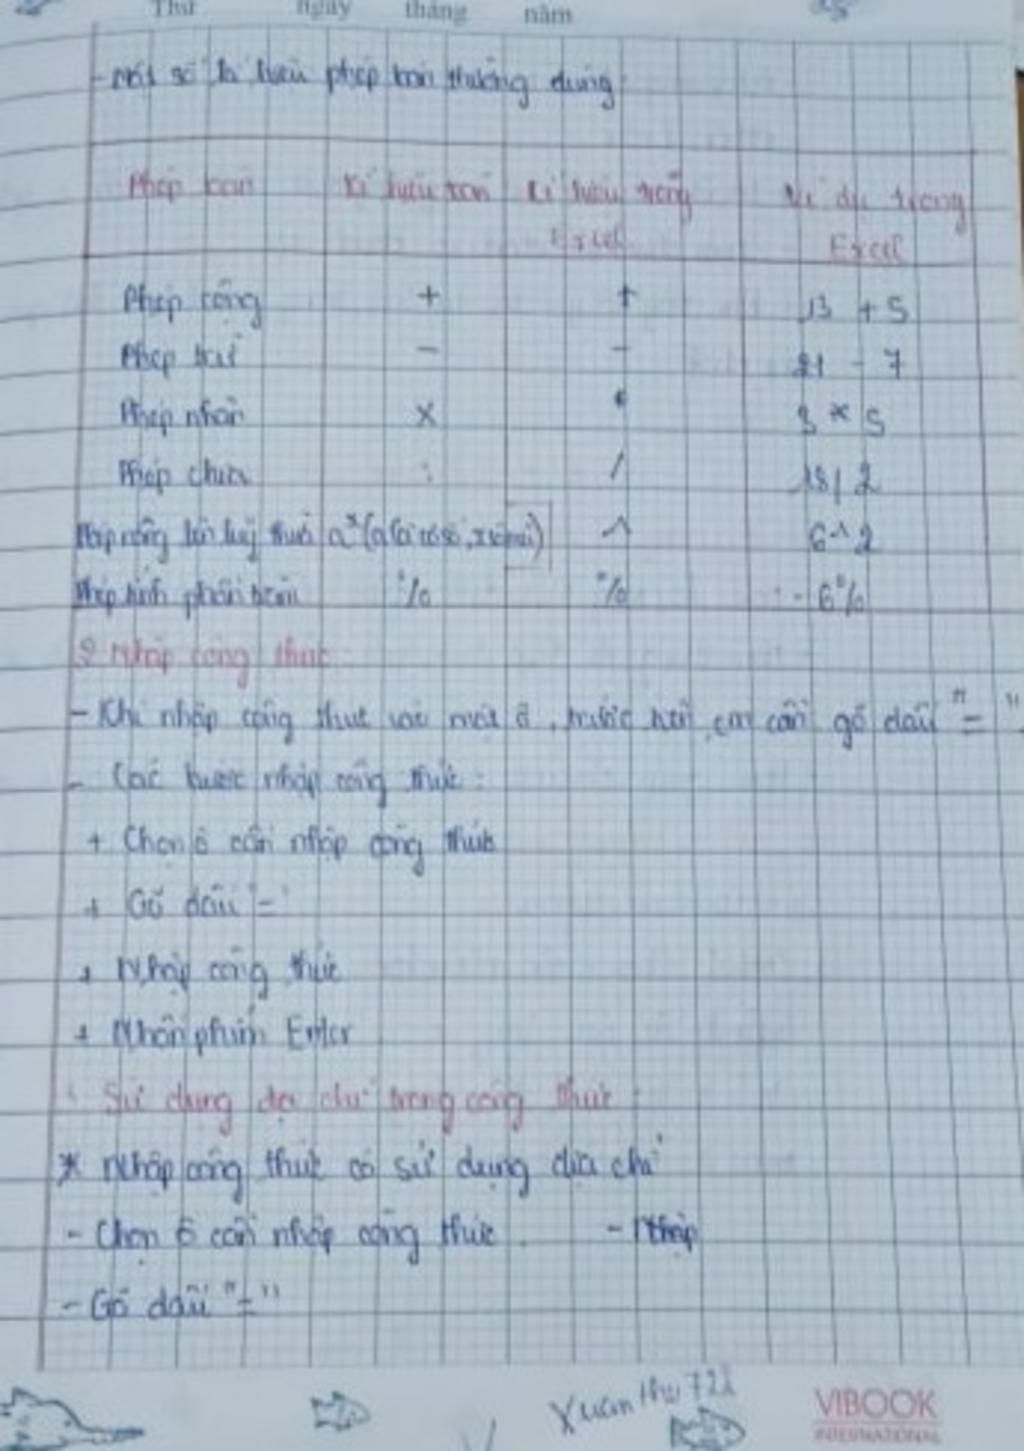 Thứ ngày tháng năm
- Một số kí hiệu phép toán thường dùng
Phép toán Kí hiệu toán Kí hiệu trong Ví dụ trong
Excel Excel
Phép cộng + + 13 + 5
Phép trừ - - 21 - 7
Phép nhân x * 3 * 5
Phép chia : / 18 / 2
Phép nâng lên luỹ thừa aˣ (a là cơ số, x là mũ) ^ 6^2
Phép tính phần trăm % % 6%
2 Nhập công thức
- Khi nhập công thức vào một ô, trước hết em cần gõ dấu "="
- Các bước nhập công thức:
+ Chọn ô cần nhập công thức
+ Gõ dấu "="
+ Nhập công thức
+ Nhấn phím Enter
Sử dụng địa chỉ trong công thức
* Nhập công thức có sử dụng địa chỉ
- Chọn ô cần nhập công thức - Nhập
- Gõ dấu "="
Xuân thu 721
VIBOOK
INTERNATIONAL